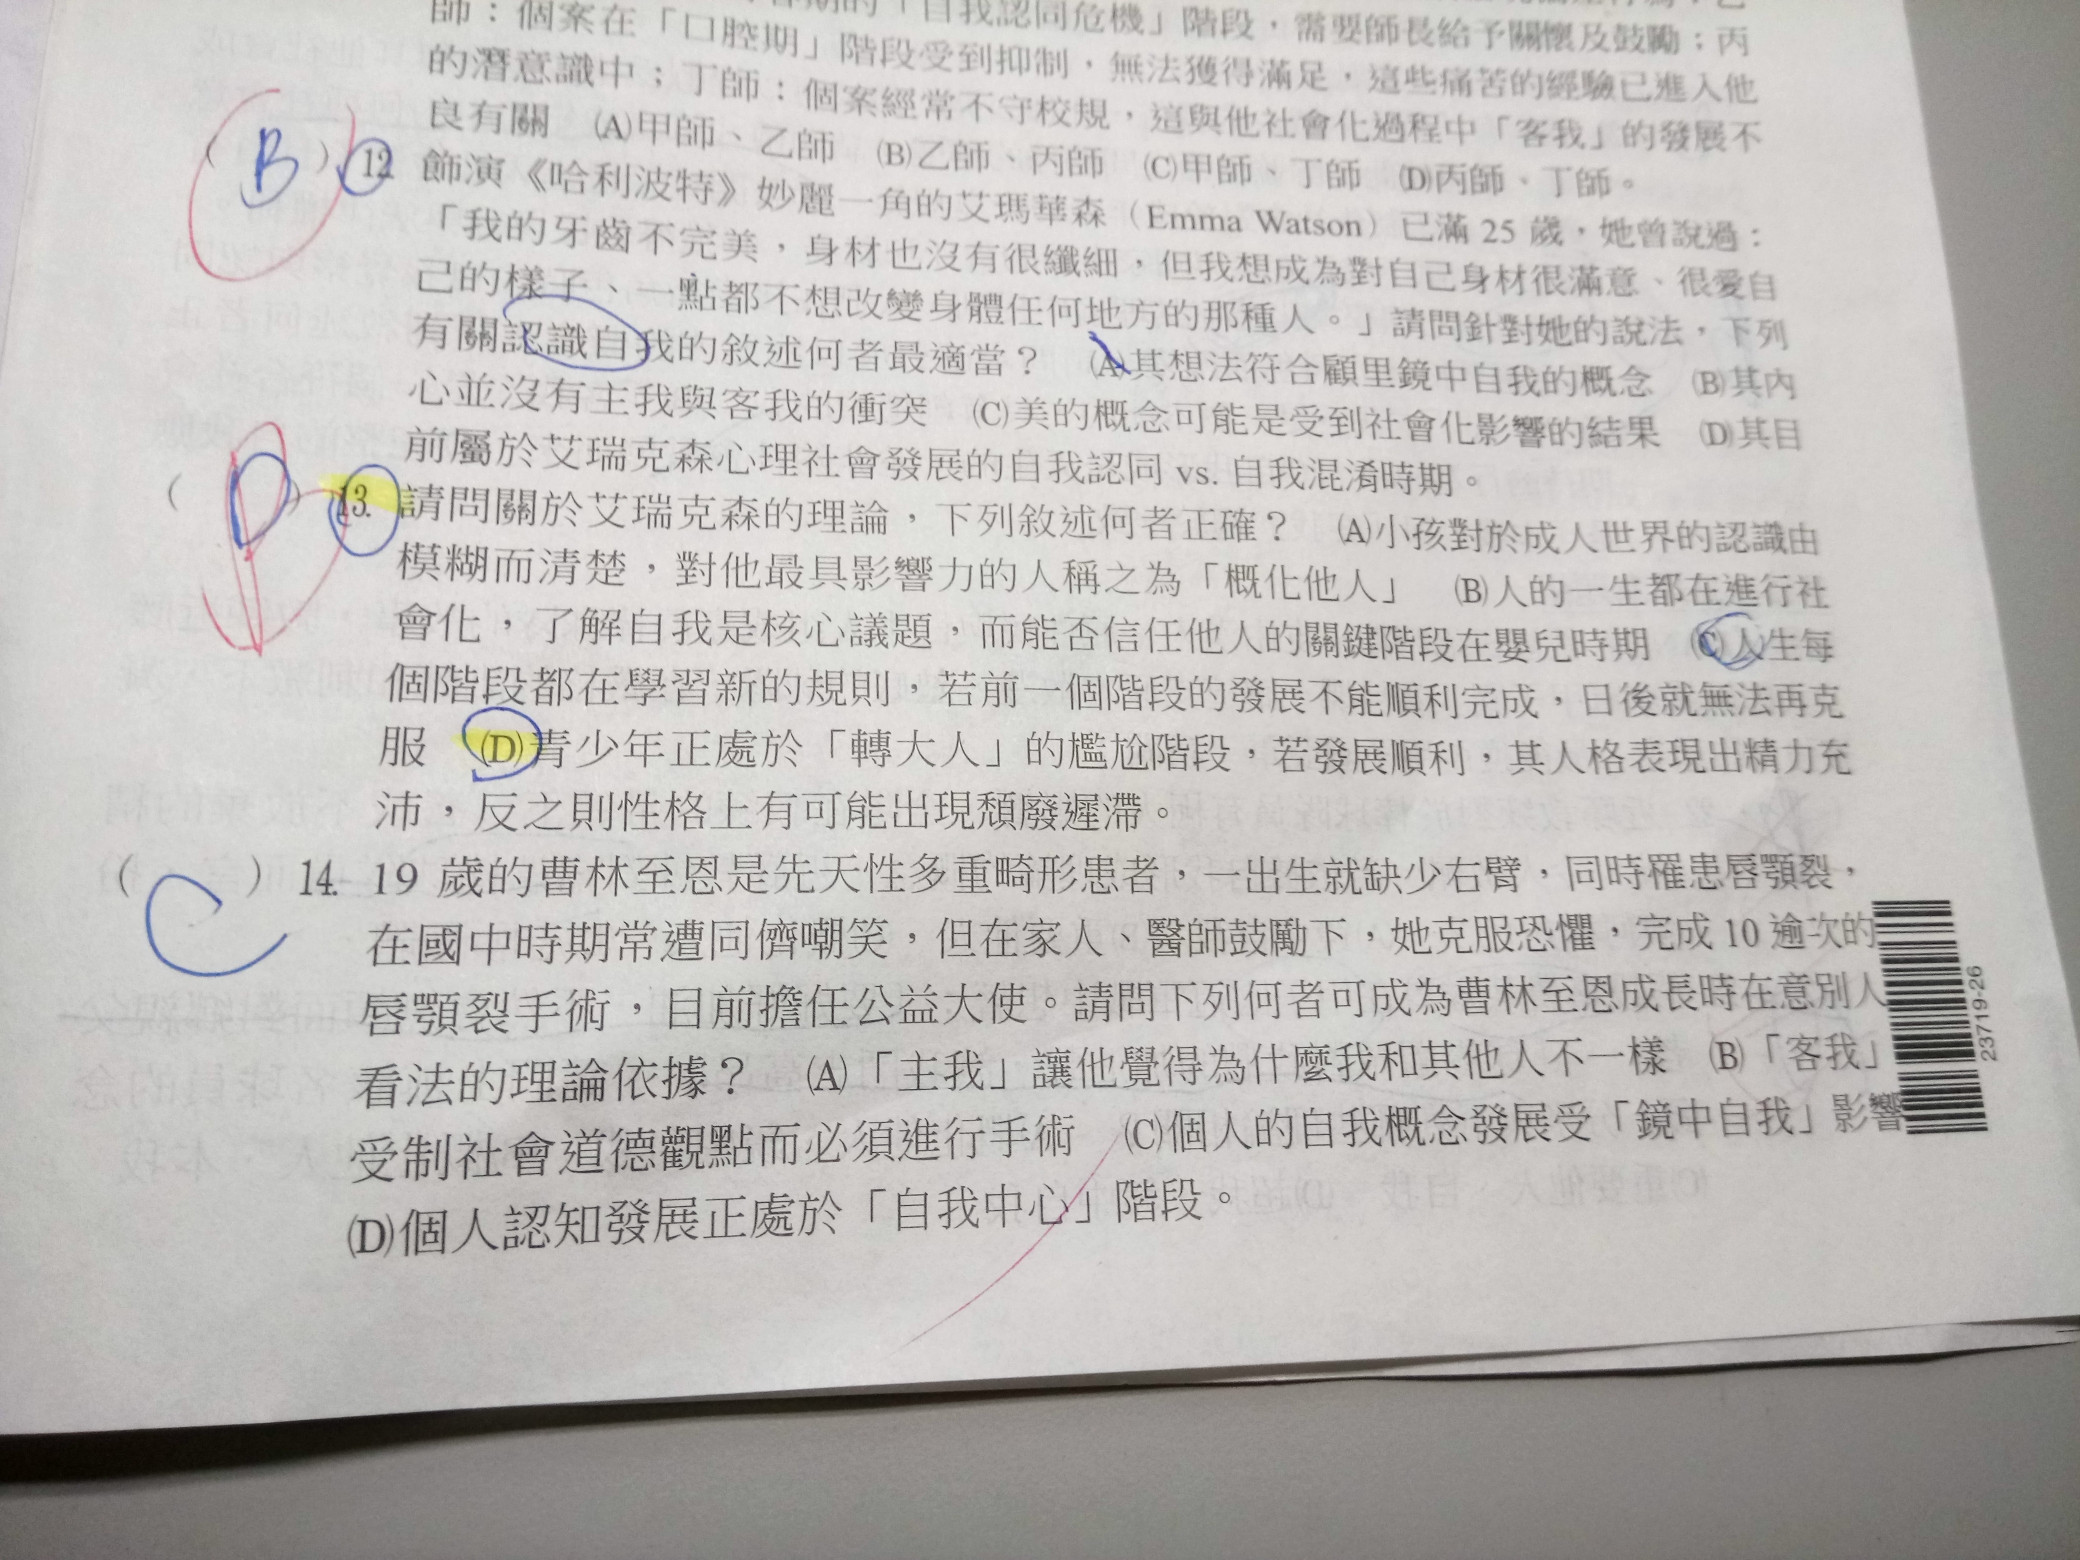 的「自我認同危機」階段，需要師長給予關懷及鼓勵；丙
師：個案在「口腔期」階段受到抑制，無法獲得滿足，這些痛苦的經驗已進入他
的潛意識中；丁師：個案經常不守校規，這與他社會化過程中「客我」的發展不
良有關 (A)甲師、乙師 (B)乙師、丙師 (C)甲師、丁師 (D)丙師、丁師。
( B ) 12. 飾演《哈利波特》妙麗一角的艾瑪華森（Emma Watson）已滿 25 歲，她曾說過：
「我的牙齒不完美，身材也沒有很纖細，但我想成為對自己身材很滿意、很愛自
己的樣子、一點都不想改變身體任何地方的那種人。」請問針對她的說法，下列
有關認識自我的敘述何者最適當？ (A)其想法符合顧里鏡中自我的概念 (B)其內
心並沒有主我與客我的衝突 (C)美的概念可能是受到社會化影響的結果 (D)其目
前屬於艾瑞克森心理社會發展的自我認同 vs. 自我混淆時期。
( D ) 13. 請問關於艾瑞克森的理論，下列敘述何者正確？ (A)小孩對於成人世界的認識由
模糊而清楚，對他最具影響力的人稱之為「概化他人」 (B)人的一生都在進行社
會化，了解自我是核心議題，而能否信任他人的關鍵階段在嬰兒時期 (C)人生每
個階段都在學習新的規則，若前一個階段的發展不能順利完成，日後就無法再克
服 (D)青少年正處於「轉大人」的尷尬階段，若發展順利，其人格表現出精力充
沛，反之則性格上有可能出現頹廢遲滯。
( C ) 14. 19 歲的曹林至恩是先天性多重畸形患者，一出生就缺少右臂，同時罹患唇顎裂，
在國中時期常遭同儕嘲笑，但在家人、醫師鼓勵下，她克服恐懼，完成 10 逾次的
唇顎裂手術，目前擔任公益大使。請問下列何者可成為曹林至恩成長時在意別人
看法的理論依據？ (A)「主我」讓他覺得為什麼我和其他人不一樣 (B)「客我」
受制社會道德觀點而必須進行手術 (C)個人的自我概念發展受「鏡中自我」影響
(D)個人認知發展正處於「自我中心」階段。
23719-26